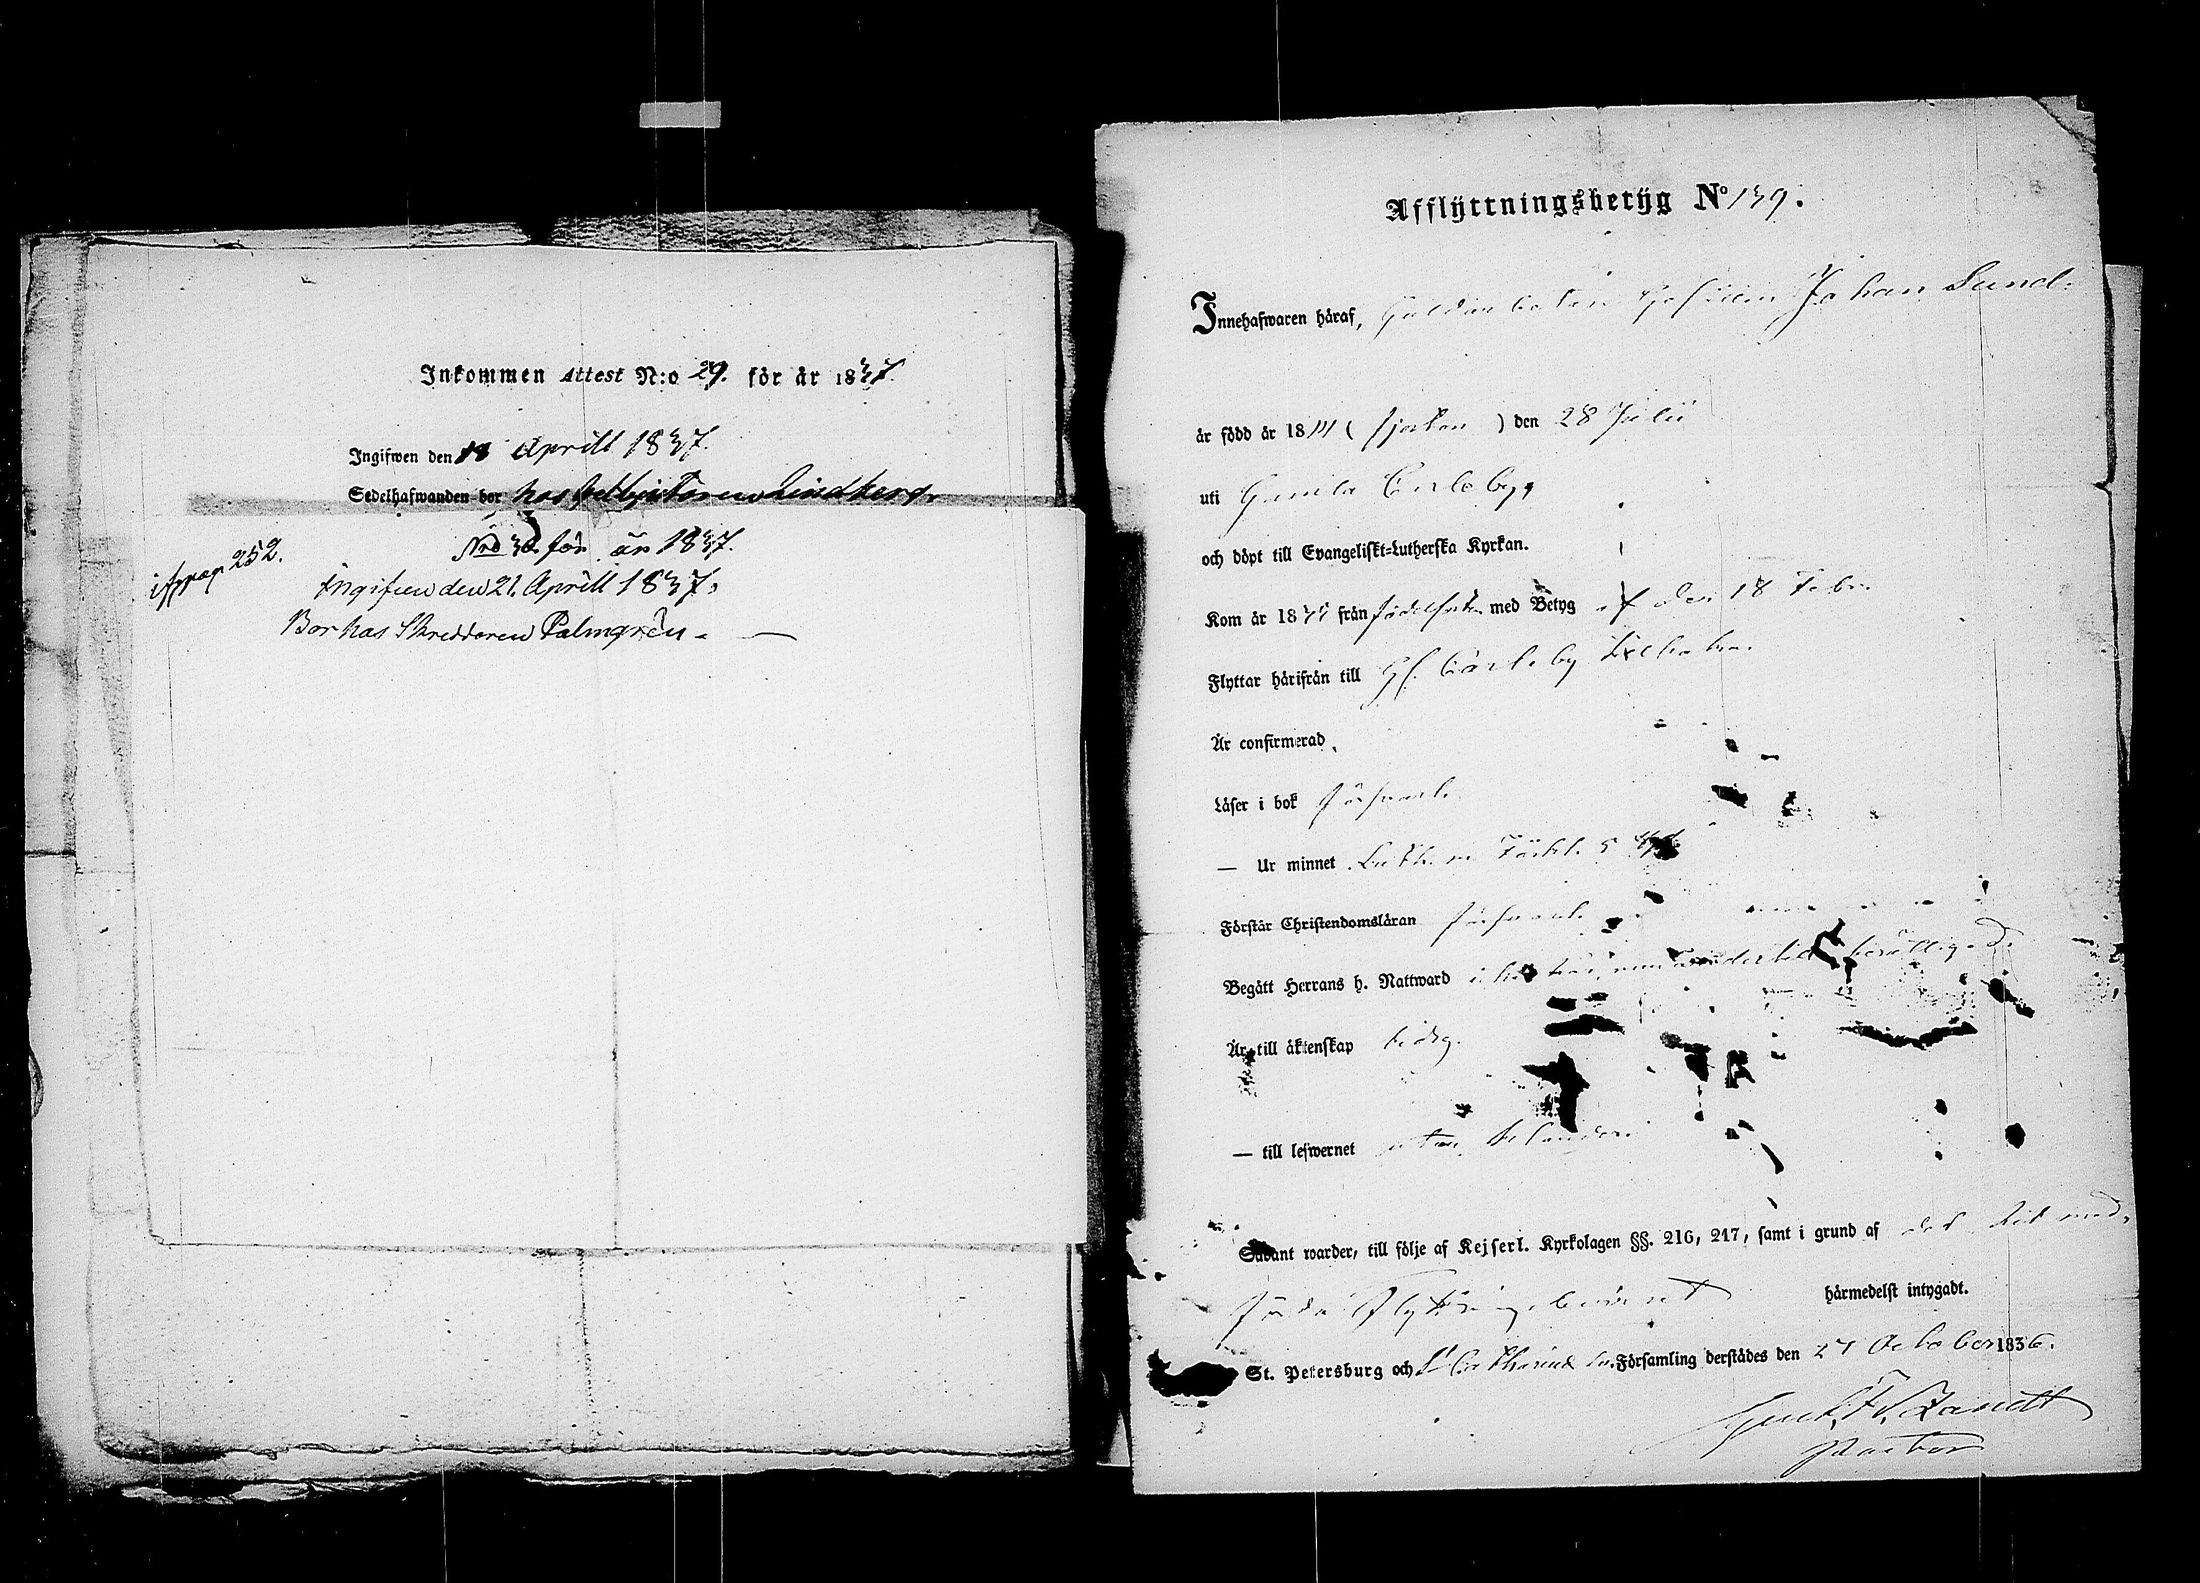 Inkommen Attest N:o 29. för år 1837.
Ingifwen den 18 Aprill 1837.
Sedelhafwanden bor hos Lindberg
N:o 30. för år 1837.
pag. 252.
Ingifven den 21. Aprill 1837.
Bor hos Skreddaren Palmgren.
Afflÿttningsbetÿg No 139.
Innehafwaren häraf, Gesällen Johan Sund.
är född år 1814 (fjorton) den 28 Julii
uti Gamla Carleby,
och döpt till Evangeliskt-Lutherska Kyrkan.
Kom år 18 från födelseorten med Betyg af den 18 Febr.
Flyttar härifrån till Gl. Carleby
Är confirmerad,
Läser i bok försvarl.
— Ur minnet Luth. m. Förkl.
Förstår Christendomsläran försvarl.
Begått Herrans h. Nattward
Är till äktenskap ledig.
— till lefwernet utan
Sådant warder, till följe af Kejserl. Kyrkolagen §§. 216, 217, samt i grund af det hit med-
förda Flyttningsbeviset härmedelst intygadt.
St. Petersburg och St Catharinæ Sv. Församling derstädes den 27 October 1836.
Gust. F. Zandt
Pastor